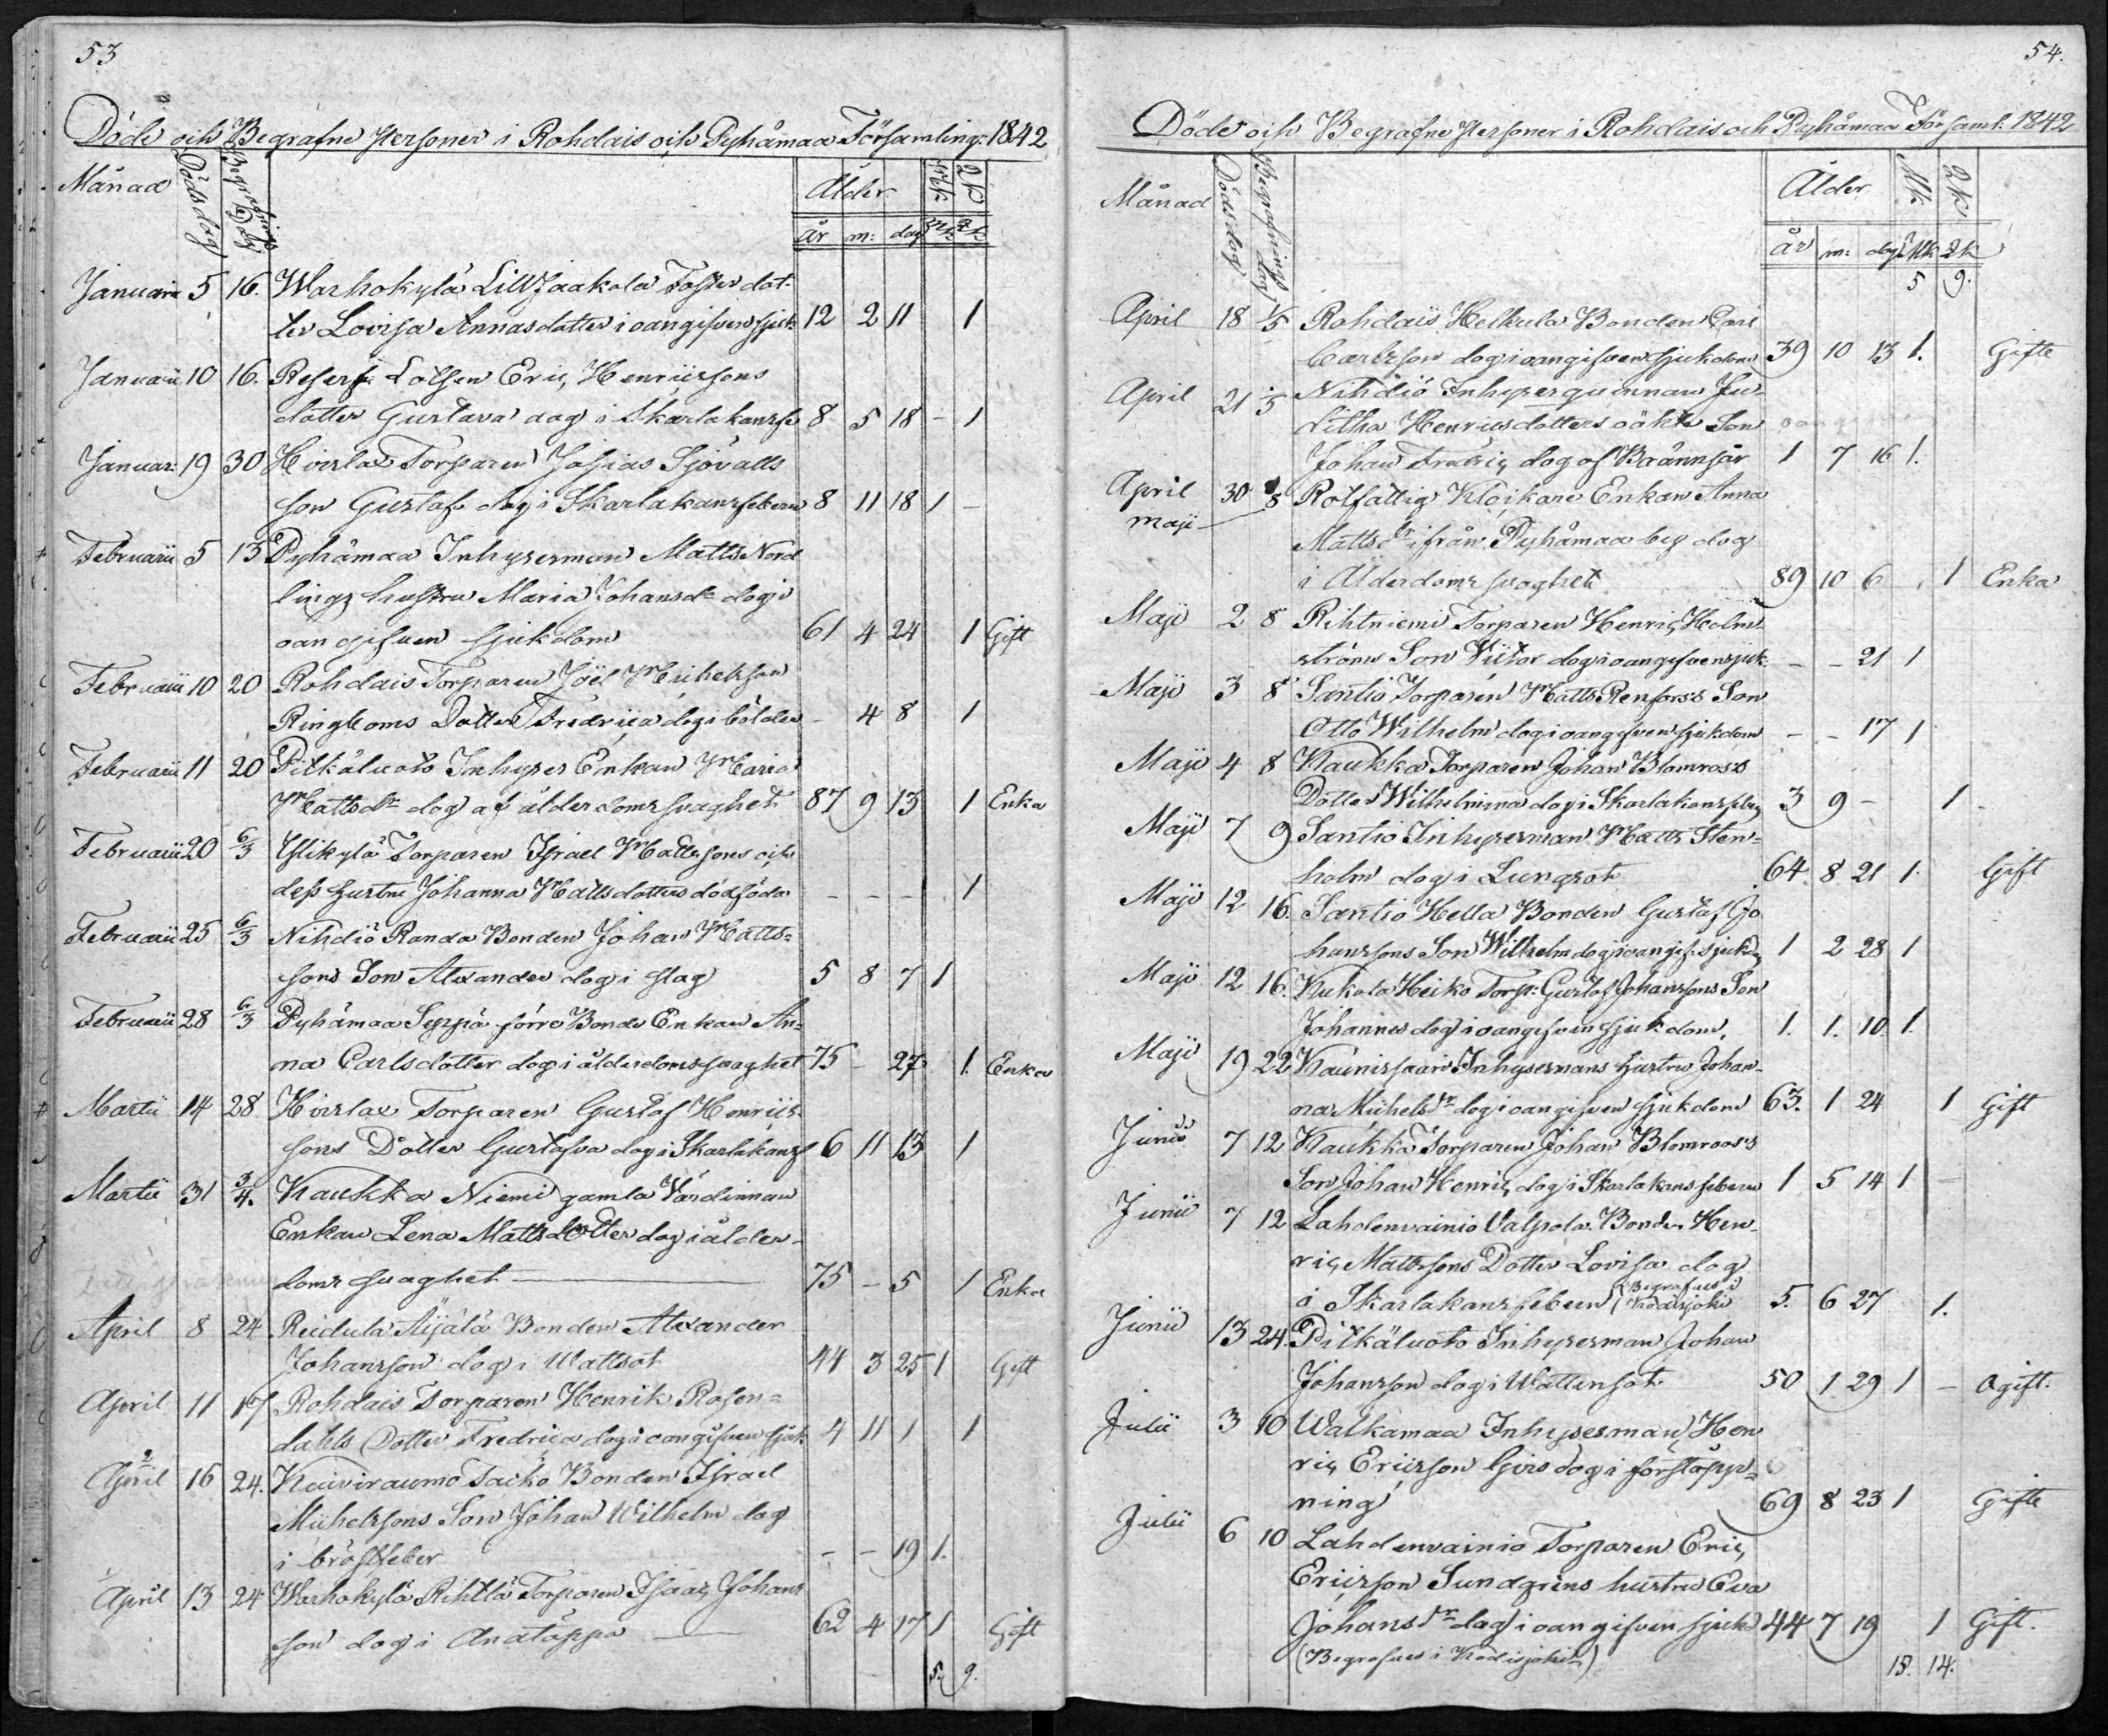 53
Döde och Begrafne Personer i Rohdais och Pyhämaa Församling: 1842
Månad Dödsdag Begrafnings Dag Ålder Mk Qk
År m: dag Mk Qk
Januarii 5 16. Warhokylä Lill Jaakola Foster dot-
ter Lovisa Annasdotter i oangifven sjuk: 12 2 11 1
Januarii 10 16. Lotsen Eric Henricssons
dotter Gustava dog i Skarlakansf 8 5 18 - 1
Januar: 19 30 Hirslax Torparen Josias Sjövalls
son Gustaf dog i Skarlakansfebern 8 11 18 1 -
Februarii 5 13 Pyhämaa Inhysesman Matts Nord
lings hustru Maria Johansdr dog i
oangifven sjukdom 61 4 24 1 Gift
Februarii 10 20 Rohdais Torparen Joël Michelsson
Ringboms Dotter Fredrica dog i bölder - 4 8 1
Februarii 11 20 Pitkäluoto Inhyses Enkan Maria
Mattsdr dog af ålderdomssvaghet 87 9 13 1 Enka
Februarii 20 6/3 Ylikylä Torparen Israel Mattssons och
dess hustru Johanna Mattsdotters dödföda - - - 1
Februarii 25 6/3 Nihdiö Randa Bonden Johan Matts-
sons Son Alexander dog i slag 5 8 7 1
Februarii 28 6/3 Pyhämaa Seppä förre Bonde Enkan An-
na Carlsdotter dog i ålderdomssvaghet 75 - 27 1. Enka
Martii 14 28 Hirslax Torparen Gustaf Henrics-
sons Dotter Gustafva dog i Skarlakansf 6 11 13 1
Martii 31 3/4. Kaukka Niemi gamla Värdinnan
Enkan Lena Mattsdotter dog i ålder-
doms svaghet 75 - 5 1 Enka
April 8 24 Reidula Äijälä Bonden Alexander
Johansson dog i Wattsot 44 3 25 1 Gift
April 11 17 Rohdais Torparen Henrik Rosen-
dahls Dotter Fredrica dog i oangifven sjuk 4 11 1 1
April 16 24. Kuiviraumo Taiko Bonden Israel
Michelssons Son Johan Wilhelm dog
i bröstfeber - - 19 1.
April 13 24 Warhokylä Rihtlä Torparen Isaac Johans
son dog i Anatäppa 62 4 17 1 Gift
5. 9.
54.
Döde och Begrafne Personer i Rohdais och Pyhämaa Församl: 1842
Månad Dödsdag Begrafnings dag Ålder Mk Qk
år m: dag Mk Qk
5 9.
April 18 1/5 Rohdais Helkula Bonden Carl
Carlsson dog i oangifven sjukdom 39 10 13 1. Gifte
April 21 1/5 Nihdiö Inhysesquinnan Ju-
ditha Henricsdotters oäkta Son
Johan Fredric dog af Brännsår 1 7 16 1.
April 30 8 Rotfattig Klåckare Enkan Anna
maji Mattsdr ifrån Pyhämaa by dog
i Ålderdoms svaghet 89 10 6 1 Enka
Maji 2 8 Rihtniemi Torparen Henric Holm-
ströms Son Victor dog i oangifven sjuk: - - 21 1
Maji 3 8 Santio Torparen Matts Renforss Son
Otto Wilhelm dog i oangifven sjukdom - - 17 1
Maji 4 8 Kaukka Torparen Johan Blomross
Dotter Wilhelmina dog i Skarlakansfeber 3 9 - 1
Maji 7 9 Santio Inhysesman Matts Sten-
holm dog i Lungsot 64 8 21 1. Gift
Maji 12 16. Santio Hella Bonden Gustaf Jo
hanssons Son Wilhelm dog i oangif: sjukd 1 2 28 1
Maji 12 16. Kukola Heiko Torp: Gustaf Johanssons Son
Johannes dog i oangifven sjukdom, 1. 1. 10 1.
Maji 19 22 Kaunissaari Inhysesmans hustru Johan-
na Michelsdr dog i oangifven sjukdom 63. 1 24 1 Gift
Junii 7 12 Kaukka Torparen Johan Blomroos's
Son Johan Henric dog i Skarlakans febern 1 5 14 1 -
Junii 7 12 Lahdenvainio Valpola Bonden Hen
ric Mattssons Dotter Lovisa dog
i Skarlakansfebern (Begrafves i Kodisjoki 5. 6 27 1.
Junii 13 24. Pitkäluoto Inhysesman Johan
Johansson dog i Wattensot 50 1 29 1 - Ogift.
Julii 3 10 Walkamaa Inhysesman Hen
ric Ericsson Girs dog i förstopp-
ning 69 8 23 1 Gifte
Julii 6 10 Lahdenvainio Torparen Eric
Ericsson Sundgrens hustru Eva
Johansdr dog i oangifven sjukd 44 7 19 1 Gift.
(Begrafves i Kodisjoki) 18. 14.